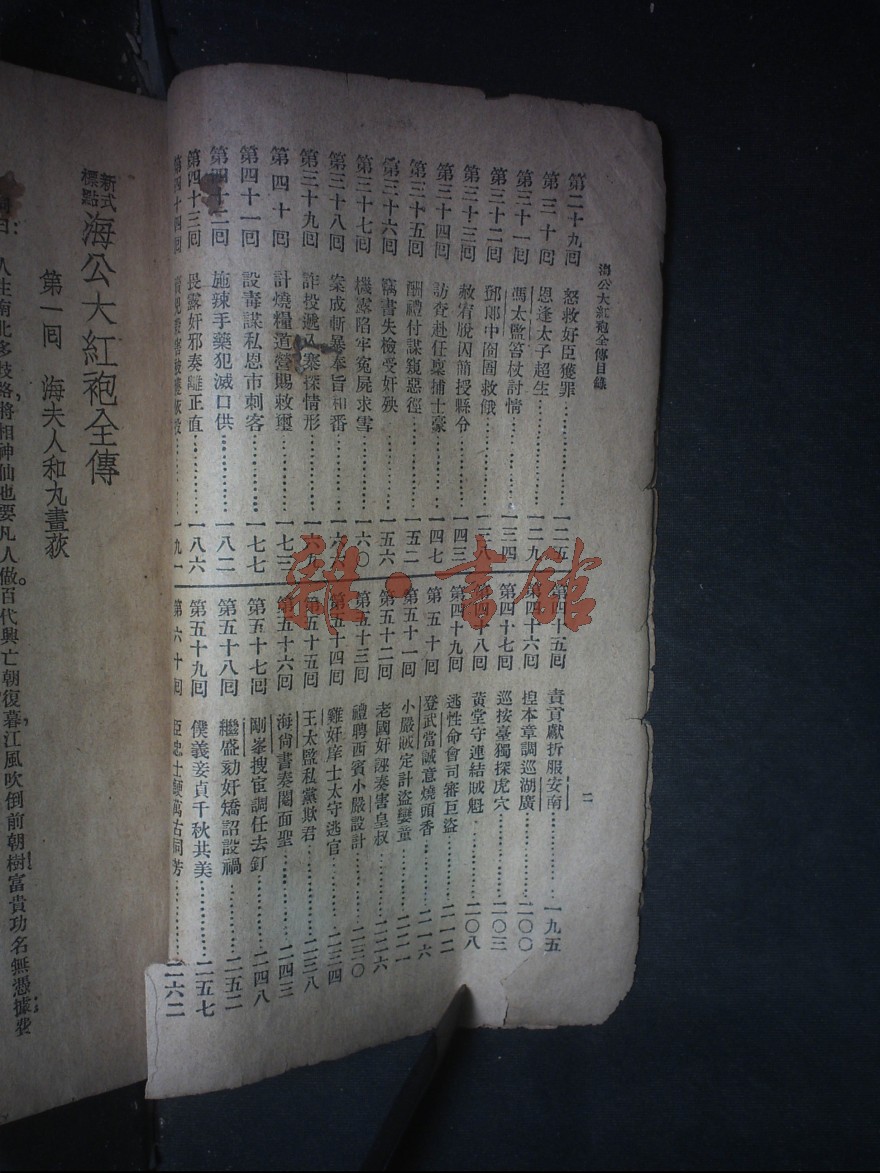 海公大紅袍全傳目錄
二
第二十九回 怒救奸臣獲罪………一二五
第三十回 恩逢太子超生………一二九
第三十一回 馮太監笞杖討情………一三四
第三十二回 鄧郎中囹圄救餓………一三八
第三十三回 赦宥脫囚簡授縣令………一四三
第三十四回 訪查赴任稟捕土豪………一四七
第三十五回 酬禮付謀窺惡徑………一五二
第三十六回 竊書失檢受奸殃………一五六
第三十七回 機露陷牢冤屍求雪………一六〇
第三十八回 案成斬暴奉旨和番………一六六
第三十九回 詐投遞入寨探情形………一六九
第四十回 計燒糧道營賜敕璽………一七三
第四十一回 設毒謀私恩市刺客………一七七
第四十二回 施辣手藥犯滅口供………一八二
第四十三回 畏露奸邪奏離正直………一八六
第四十四回………一九一
第四十五回 責貢獻折服安南………一九五
第四十六回 捏本章調巡湖廣………二〇〇
第四十七回 巡按臺獨探虎穴………二〇三
第四十八回 黃堂守連結賊魁………二〇八
第四十九回 逃性命會司審巨盜………二一二
第五十回 登武當誠意燒頭香………二一六
第五十一回 小嚴賊定計盜孌童………二二一
第五十二回 老國奸誣奏害皇叔………二二六
第五十三回 禮聘西賓小嚴設計………二三〇
第五十四回 雞奸庠士太守逃官………二三四
第五十五回 王太監私黨欺君………二三八
第五十六回 海尚書奏閹面聖………二四三
第五十七回 剛峯搜宦調任去釘………二四八
第五十八回 繼盛劾奸矯詔設禍………二五二
第五十九回 僕義妾貞千秋共美………二五七
第六十回 臣忠士鯁萬古同芳………二六二
新式標點 海公大紅袍全傳
第一回 海夫人和丸畫荻
曰：人生南北多枝路，將相神仙也要凡人做。百代興亡朝復暮，江風吹倒前朝樹富貴功名無憑據；